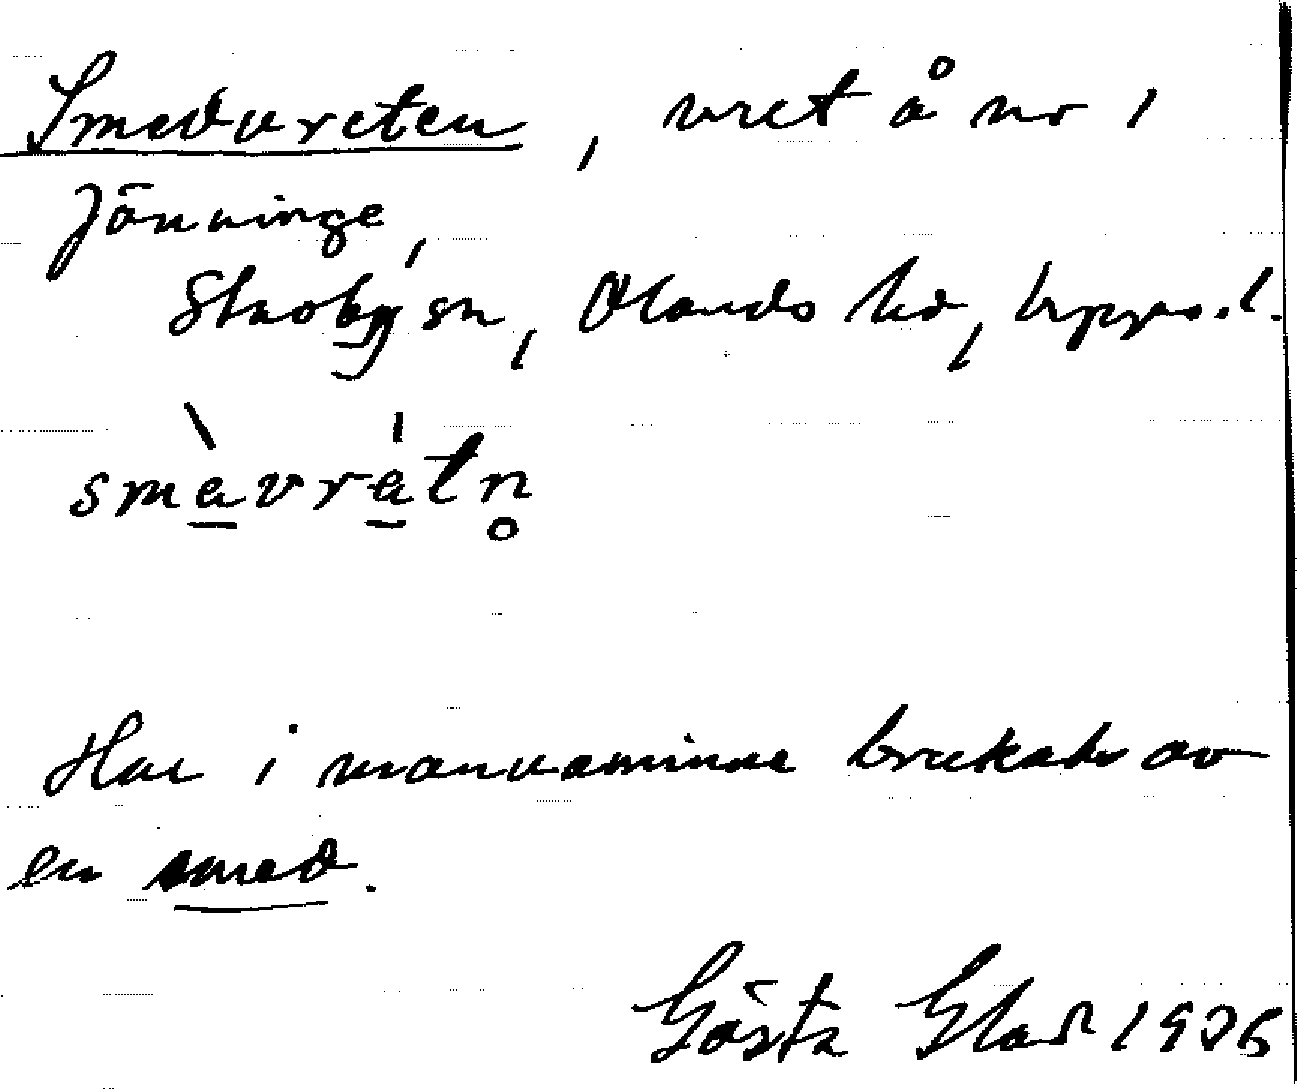 Smedvreten, vret å nr 1
Jönninge,
Skoby sn, Olands hd, Upps. l.
smàvrátn̥
Har i mannaminne brukats av
en smed.
Gösta Glad 1926